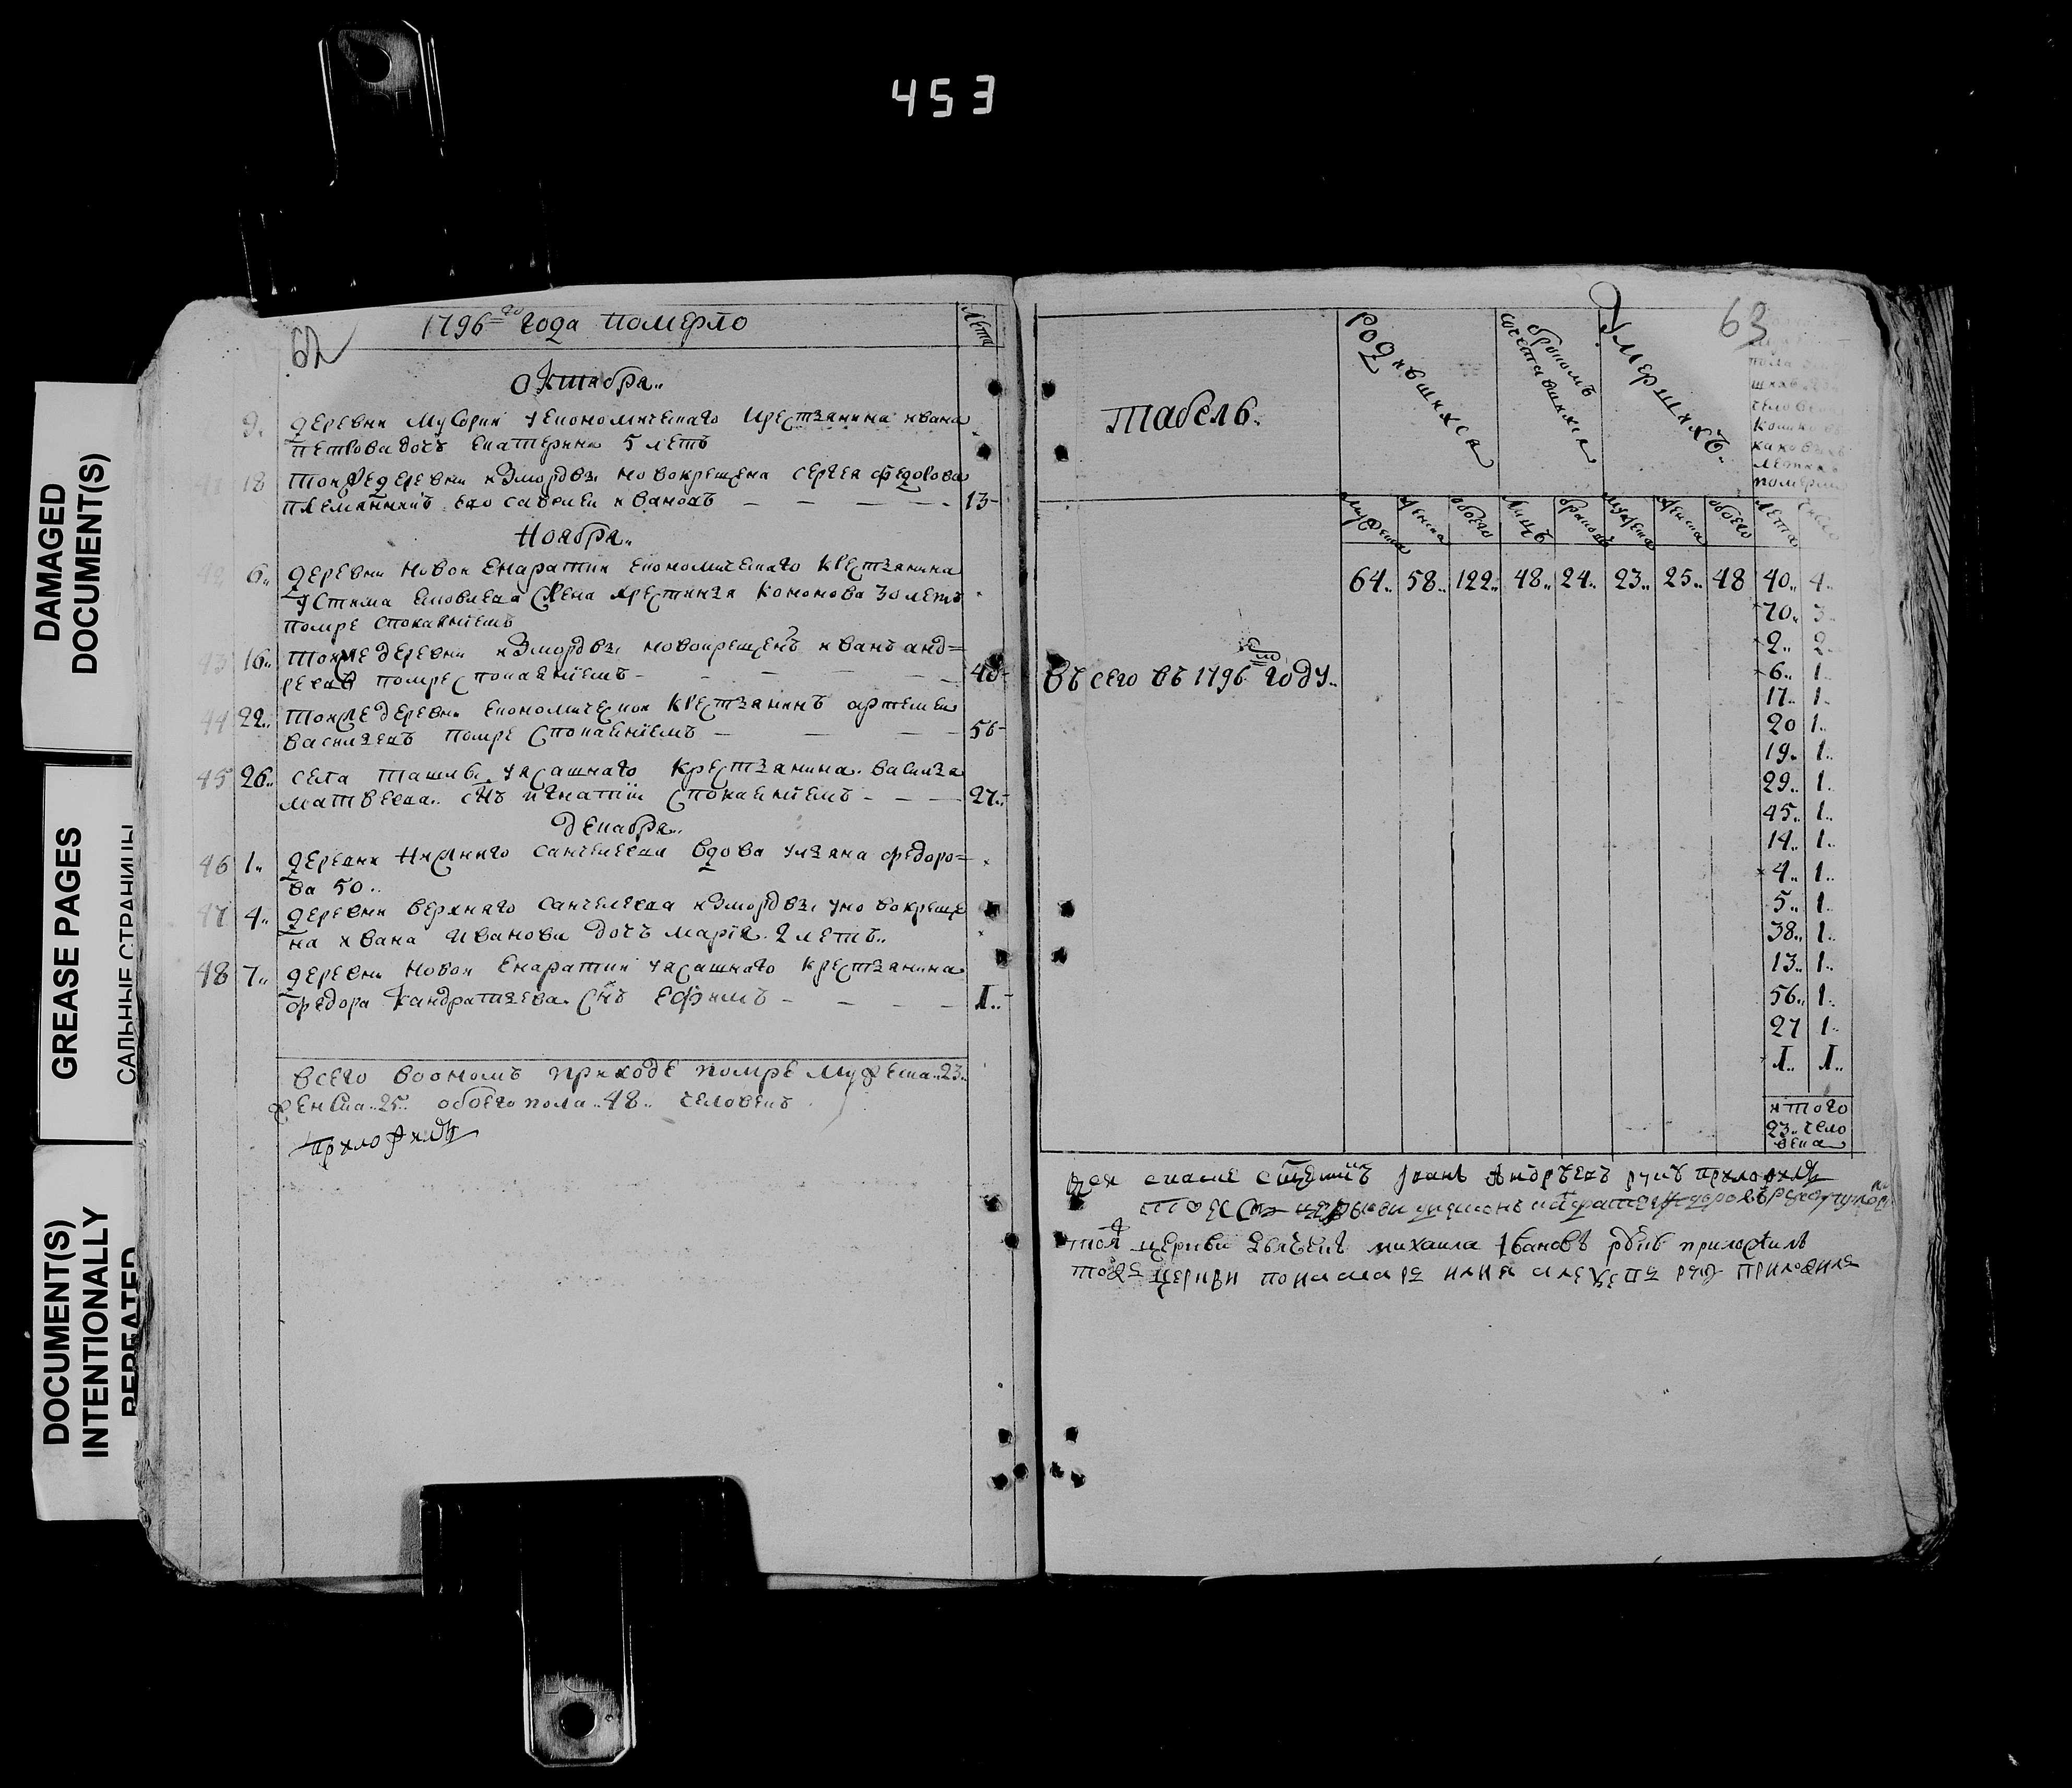 453
DAMAGED
DOCUMENT(S)
GREASE PAGES
САЛЬНЫЕ СТРАНИЦЫ
DOCUMENT(S)
INTENTIONALLY
REPEATED
62
1796=го года померло
лета
Октября..
9. деревни Мусорки у економическаго крестьянина ивана
петрова дочь екатерина 5 летъ
41 18 тоежъ деревни измордвы новокрещена сергея федорова
племянникъ ево савелей ивановъ 13
Ноября..
42 6.. деревни новои Екаратки економическаго крестьянина
устима жена крестинья кононова 30 летъ
помре спокаяниемъ
43 16.. тоеже деревни измордвы новокрещенъ иванъ анд=
реевъ помре спокаяниемъ 40
44 22.. тоеже деревни економическои крестьянинъ артемеи
васильевъ помре спокаяниемъ 56
45 26.. села ташлы ясашнаго крестьянина василья
матвеева.. снъ игнатіи спокаяніемъ 27..
декабря..
46 1.. деревни нижняго санчелеева вдова ульяна федоро=
ва 50..
47 4.. деревни верхняго санчелеева измордвы уновокреще
на ивана иванова дочь марія 2 летъ..
48 7.. деревни новои Екаратки ясашнаго крестьянина
федора кандратьева. снъ ефимъ 1..
всего воономъ приходе помре мужеска..23..
женска..25.. обоего пола..48.. человекъ
приложилъ
63
табель.
родившихса
бракомъ
сочетавшихса
Умершихъ.
пола
человекъ
каковыхъ
летахъ
померли
мужеска женска обоего лицъ браковъ мужеска женска обоего лета число
64.. 58.. 122.. 48.. 24.. 23.. 25.. 48 40.. 4..
70.. 3..
2.. 2..
Въсего въ 1796 году..
6.. 1..
17.. 1..
20 1..
19.. 1..
29.. 1..
45.. 1..
14.. 1..
4.. 1..
5.. 1..
38.. 1..
13.. 1..
56.. 1..
27 1..
1.. 1..
итого
23.. чело
века
Іоанъ Андрѣевъ руку приложилъ
тоя церкви михаила Ивановъ приложилъ
тояже церкви понамарь илия алексеевъ руку приложилъ